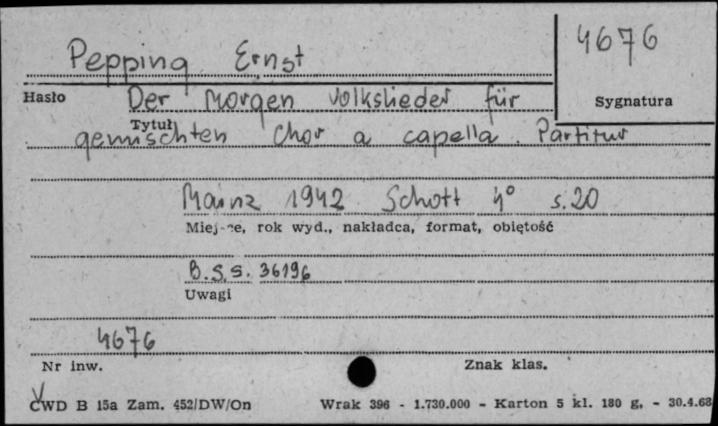 4676
Pepping Ernst
Hasło Der Morgen Volkslieder für Sygnatura
Tytuł
gemischten Chor a capella. Partitur
Mainz 1942 Schott 4° s. 20
Miejsce, rok wyd., nakładca, format, objętość
B.S.S. 36196
Uwagi
4676
Nr inw. Znak klas.
CWD B 15a Zam. 452/DW/On Wrak 396 - 1.730.000 - Karton 5 kl. 180 g. - 30.4.68